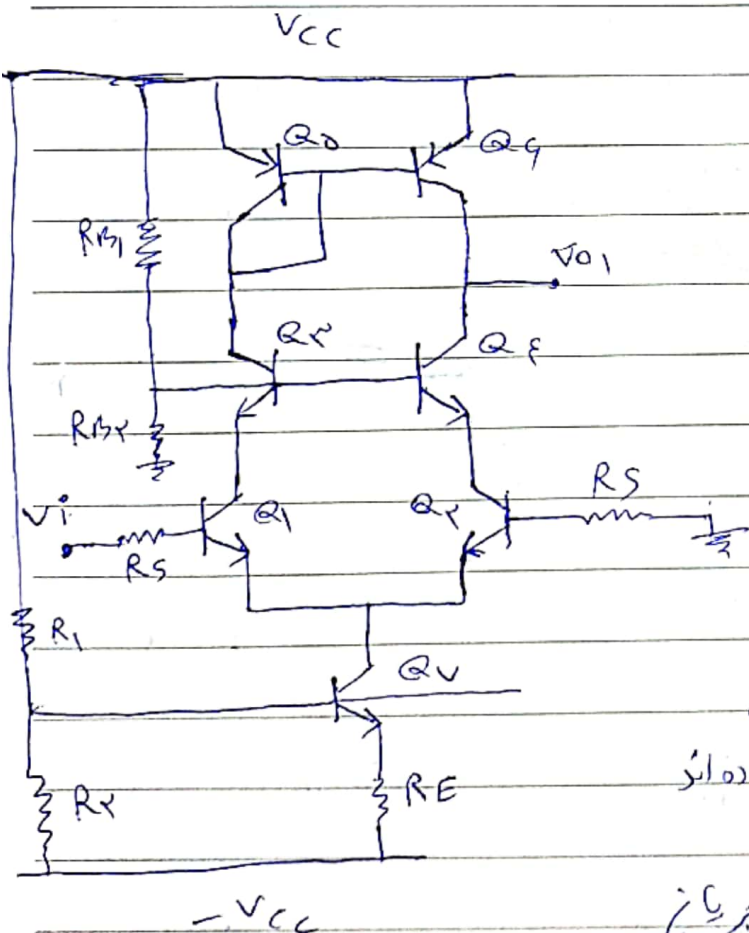 VCC
Q۵ Q۶
RB۱
Vo۱
Q۳ Q۴
RB۲
Vi Q۱ Q۲ RS
RS
R۱
Q۷
R۲ RE
-VCC